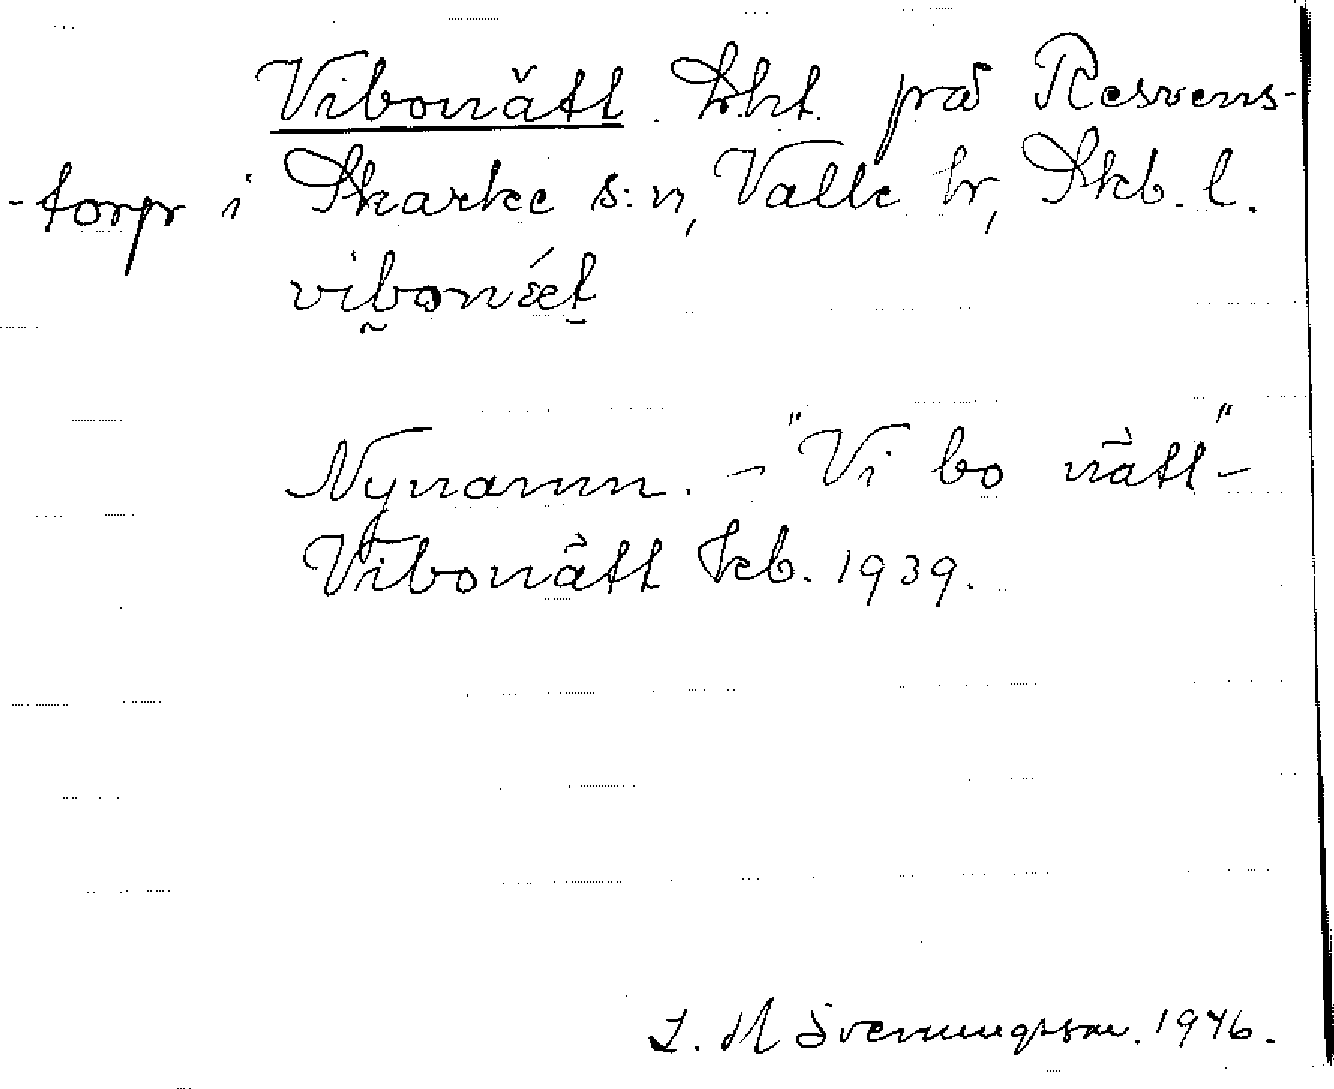 Vibonätt. Lht. på Resvens-
-torp i Skarke s:n, Valle hr, Skb. l.
vibonǽt
Nynamn. – "Vi bo nätt" –
Vibonätt Feb. 1939.
L. M Svenungsson. 1946.